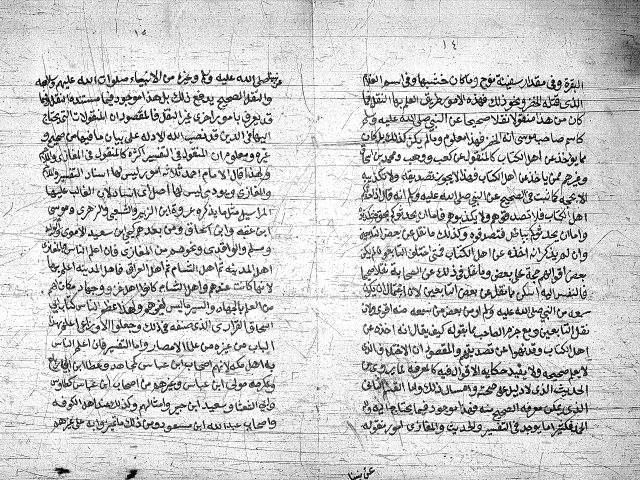 ١٤
البقرة وفي مقدار سفينة نوح وما كان خشبها وفي اسم الغلام
الذي قتله الخضر ونحو ذلك فهذه الامور طريق العلم بها النقل فما
كان من هذا منقولا نقلا صحيحا عن النبي صلى الله عليه وسلم
كاسم صاحب موسى انه الخضر فهذا معلوم وما لم يكن كذلك بل كان
مما يؤخذ عن اهل الكتاب كالمنقول عن كعب ووهب ومحمد بن
وغيرهم ممن ياخذ عن اهل الكتاب فهذا لا يجوز تصديقه ولا تكذيبه
الا بحجة كما ثبت في الصحيح عن النبي صلى الله عليه وسلم انه قال اذا
اهل الكتاب فلا تصدقوهم ولا تكذبوهم فاما ان يحدثوكم بحق
واما ان يحدثوكم بباطل فتصدقوه وكذلك ما نقل عن بعض التابعين
وان لم يذكر انه اخذه عن اهل الكتاب فمتى اختلف التابعون لم يكن
بعض اقوالهم حجة على بعض وما نقل في ذلك عن الصحابة نقلا صحيحا
فالنفس اليه اسكن مما نقل عن بعض التابعين لان احتمال ان يكون
سمعه من النبي صلى الله عليه وسلم او من بعض من سمعه منه اقوى ولان
نقل التابعين ومع جزم الصاحب بما يقوله كيف يقال انه اخذه عن
اهل الكتاب وقد نهوا عن تصديقهم والمقصود ان الاختلاف الذي
لا يعلم صحيحه ولا يفيد حكاية الاقوال فيه كالمعرفة لما يروى من
الحديث الذي لا دليل على صحته وامثال ذلك واما القسم الثاني
الذي يمكن معرفة الصحيح منه فهذا موجود فيما يحتاج اليه ولله
الحمد فكثيرا ما يوجد في التفسير والحديث والمغازي امور منقولة
عن نبينا
١٥
عن نبينا صلى الله عليه وسلم وغيره من الانبياء صلوات الله عليهم وسلامه
والنقل الصحيح يدفع ذلك بل هذا موجود فيما مستنده النقل وفيما
قد يعرف بامور اخرى غير النقل فالمقصود ان المنقولات التي يحتاج
اليها في الدين قد نصب الله الادلة على بيان ما فيها من صحيح و
غيره ومعلوم ان المنقول في التفسير اكثره كالمنقول في المغازي والملاحم
ولهذا قال الامام احمد ثلاثة امور ليس لها اسناد التفسير والملاحم
والمغازي ويروى ليس لها اصل اي اسناد لان الغالب عليها
المراسيل مثل ما يذكره عروة ابن الزبير والشعبي والزهري وموسى
ابن عقبة وابن اسحاق ومن بعدهم كيحيى بن سعيد الاموي والوليد بن
مسلم والواقدي ونحوهم من المغازي فان اعلم الناس بالمغازي
اهل المدينة ثم اهل الشام ثم اهل العراق فاهل المدينة اعلم بها
لانها كانت عندهم واهل الشام كانوا اهل غزو وجهاد فكان لهم
من العلم بالجهاد والسير ما ليس لغيرهم ولهذا عظم الناس كتاب ابي
اسحاق الفزاري الذي صنفه في ذلك وجعلوا الاوزاعي اعلم بهذا
الباب من غيره من علماء الامصار واما التفسير فان اعلم الناس
به اهل مكة لانهم اصحاب ابن عباس كمجاهد وعطا ابن ابي رباح
وعكرمة مولى ابن عباس وغيرهم من اصحاب ابن عباس كطاوس
وابي الشعثا وسعيد ابن جبير وامثالهم وكذلك اهل الكوفة
واصحاب عبد الله ابن مسعود ومن ذلك ما تميزوا به على غيرهم